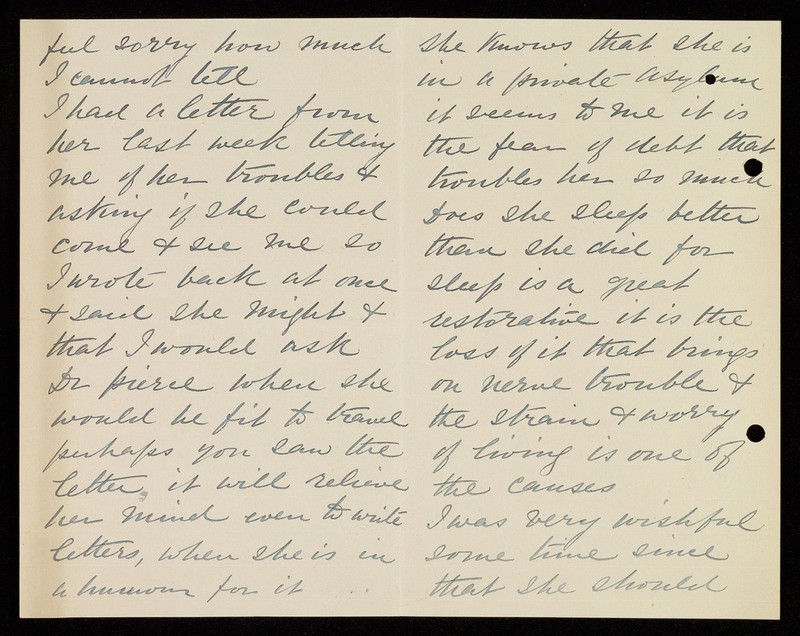 ful sorry how much
I cannot tell
I had a letter from
her last week telling
me of her troubles &
asking if she could
come & see me so
I wrote back at once
& said she might &
that I would ask
Dr pierce when she
would be fit to travel
perhaps you saw the
letter, it will relieve
her mind even to write
letters, when she is in
a humour for it
she knows that she is
in a private asylum
it seems to me it is
the fear of debt that
troubles her so much
Does she sleep better
than she did for
sleep is a great
restorative it is the
loss of it that brings
on nerve trouble &
the strain & worry
of living is one of
the causes
I was very wishful
some time since
that she should